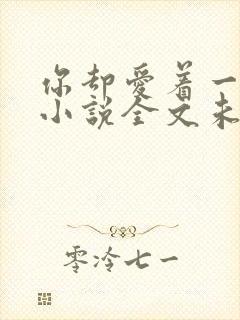 你却爱着一
小说全文未
零泠七一